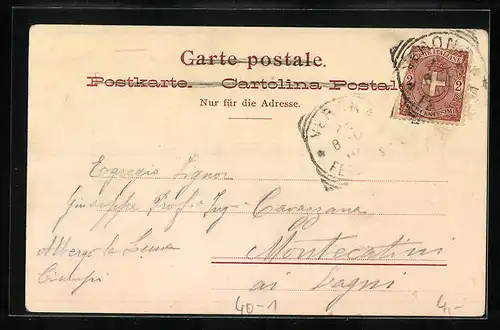 Carte postale.
Postkarte. — Cartolina Postal
Nur für die Adresse.
VERONA
2 2
VERONA
Egregio Signor
Giuseppe Ing. Cavazzana
Albergo la Luna
Montecatini
ai Bagni
40-1
4,-